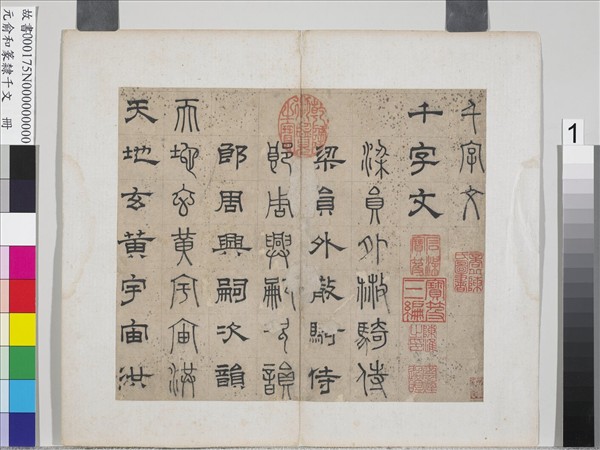 千字文
千字文
梁員外散騎侍
梁員外散騎侍
郎周興嗣次韻
郎周興嗣次韻
天地玄黃宇宙洪
天地玄黃宇宙洪
寶笈三編
故書000175N000000000
元俞和篆隸千文 冊
1